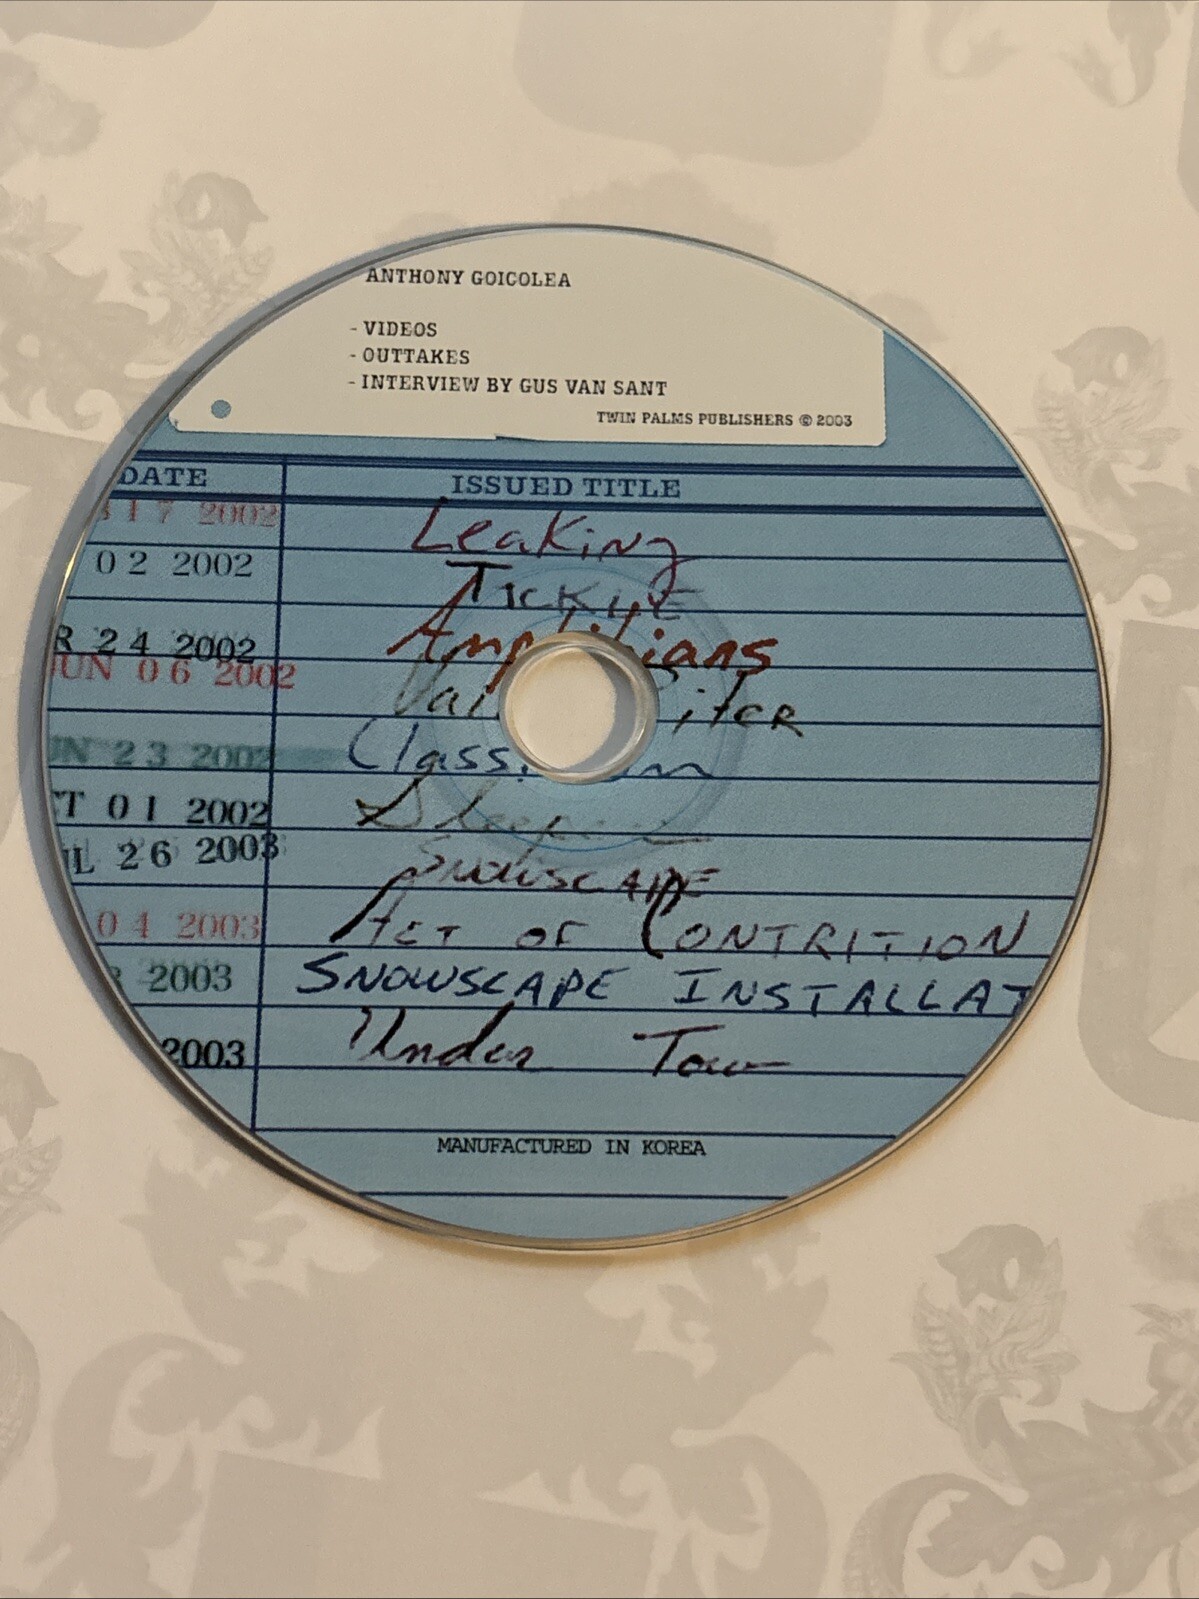 ANTHONY GOICOLEA
- VIDEOS
- OUTTAKES
- INTERVIEW BY GUS VAN SANT
TWIN PALMS PUBLISHERS © 2003
DATE ISSUED TITLE
17 2002 Leaking
02 2002 TICKLE
R 24 2002 Amphibians
JUN 06 2002
UN 23 2002 Class
CT 01 2002
UL 26 2003 SNOWSCAPE
04 2003 ACT OF CONTRITION
2003 SNOWSCAPE INSTALLAT
2003 Under Tow
MANUFACTURED IN KOREA